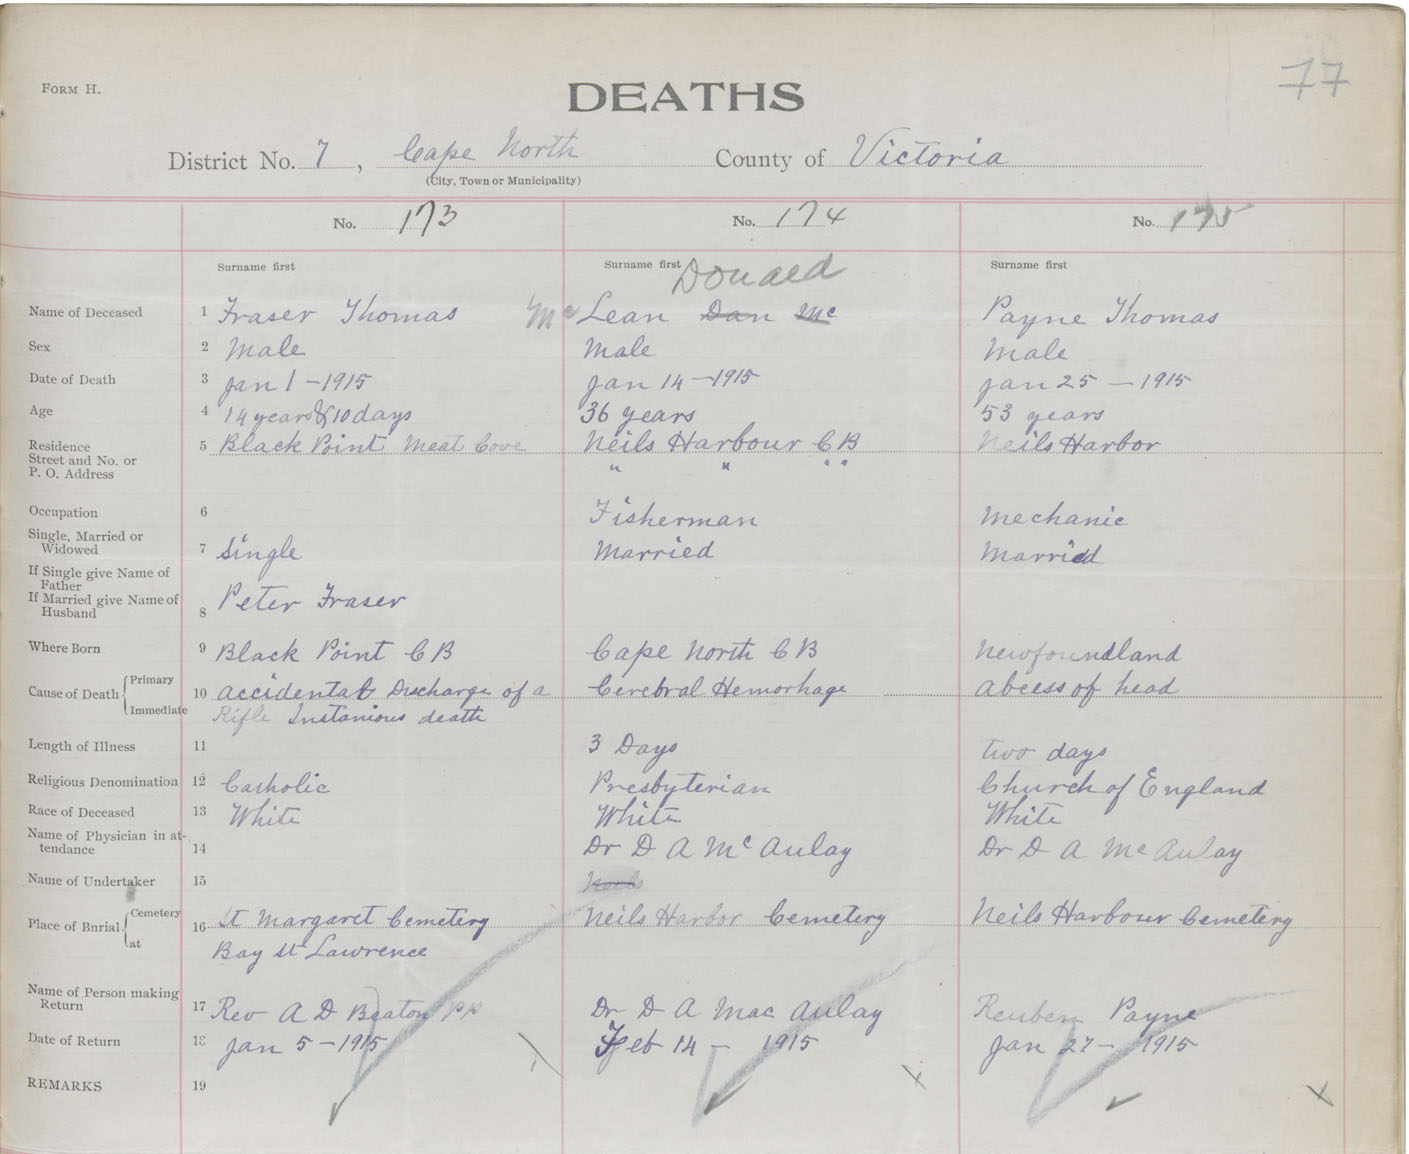 77
FORM H.
DEATHS
District No. 7, Cape North County of Victoria
(City, Town or Municipality)
No. 173 No. 174 No. 175
Surname first Surname first Surname first
Donald
Name of Deceased 1 Fraser Thomas Mc Lean Dan Mc Payne Thomas
Sex 2 Male Male Male
Date of Death 3 Jan 1 - 1915 Jan 14 - 1915 Jan 25 - 1915
Age 4 14 years & 10 days 36 years 53 years
Residence 5 Black Point Meat Cove Neils Harbour C B Neils Harbor
Street and No. or " " " "
P. O. Address
Occupation 6 Fisherman Mechanic
Single, Married or
Widowed 7 Single Married Married
If Single give Name of
Father
If Married give Name of
Husband 8 Peter Fraser
Where Born 9 Black Point C B Cape North C B Newfoundland
Cause of Death Primary 10 Accidental Discharge of a Cerebral Hemorhage Abcess of head
Immediate Rifle Instanious death
Length of Illness 11 3 Days two days
Religious Denomination 12 Catholic Presbyterian Church of England
Race of Deceased 13 White White White
Name of Physician in at-
tendance 14 Dr D A Mc Aulay Dr D A Mc Aulay
Name of Undertaker 15
Place of Burial Cemetery 16 St Margaret Cemetery Neils Harbor Cemetery Neils Harbour Cemetery
at Bay St Lawrence
Name of Person making
Return 17 Rev A D Beaton PP Dr D A Mac Aulay Reuben Payne
Date of Return 18 Jan 5 - 1915 Feb 14 - 1915 Jan 27 - 1915
REMARKS 19